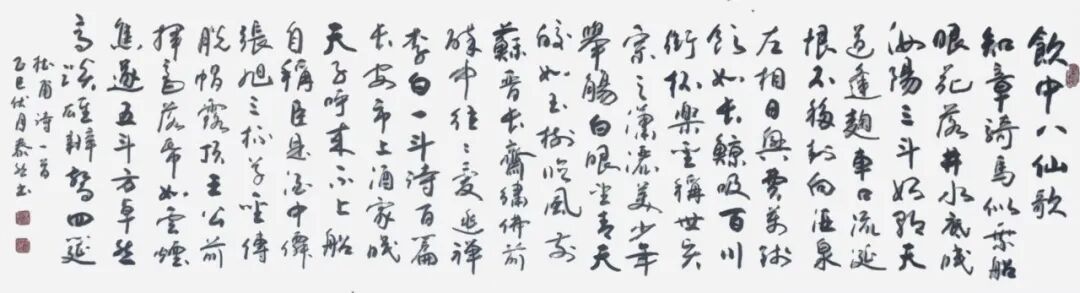 飲中八仙歌
知章騎馬似乘船
眼花落井水底眠
汝陽三斗始朝天
道逢麴車口流涎
恨不移封向酒泉
左相日興費萬錢
飲如長鯨吸百川
銜杯樂聖稱世賢
宗之瀟灑美少年
舉觴白眼望青天
皎如玉樹臨風前
蘇晉長齋繡佛前
醉中往〻愛逃禪
李白一斗詩百篇
長安市上酒家眠
天子呼來不上船
自稱臣是酒中僊
張旭三杯草聖傳
脫帽露頂王公前
揮毫落紙如雲煙
焦遂五斗方卓然
高談雄辯驚四筵
杜甫詩一首
乙巳伏月